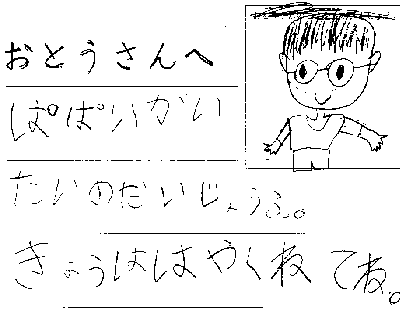 おとうさんへ
ぱぱいがい
たいのだいじょうふ。
きょうははやくねてね。